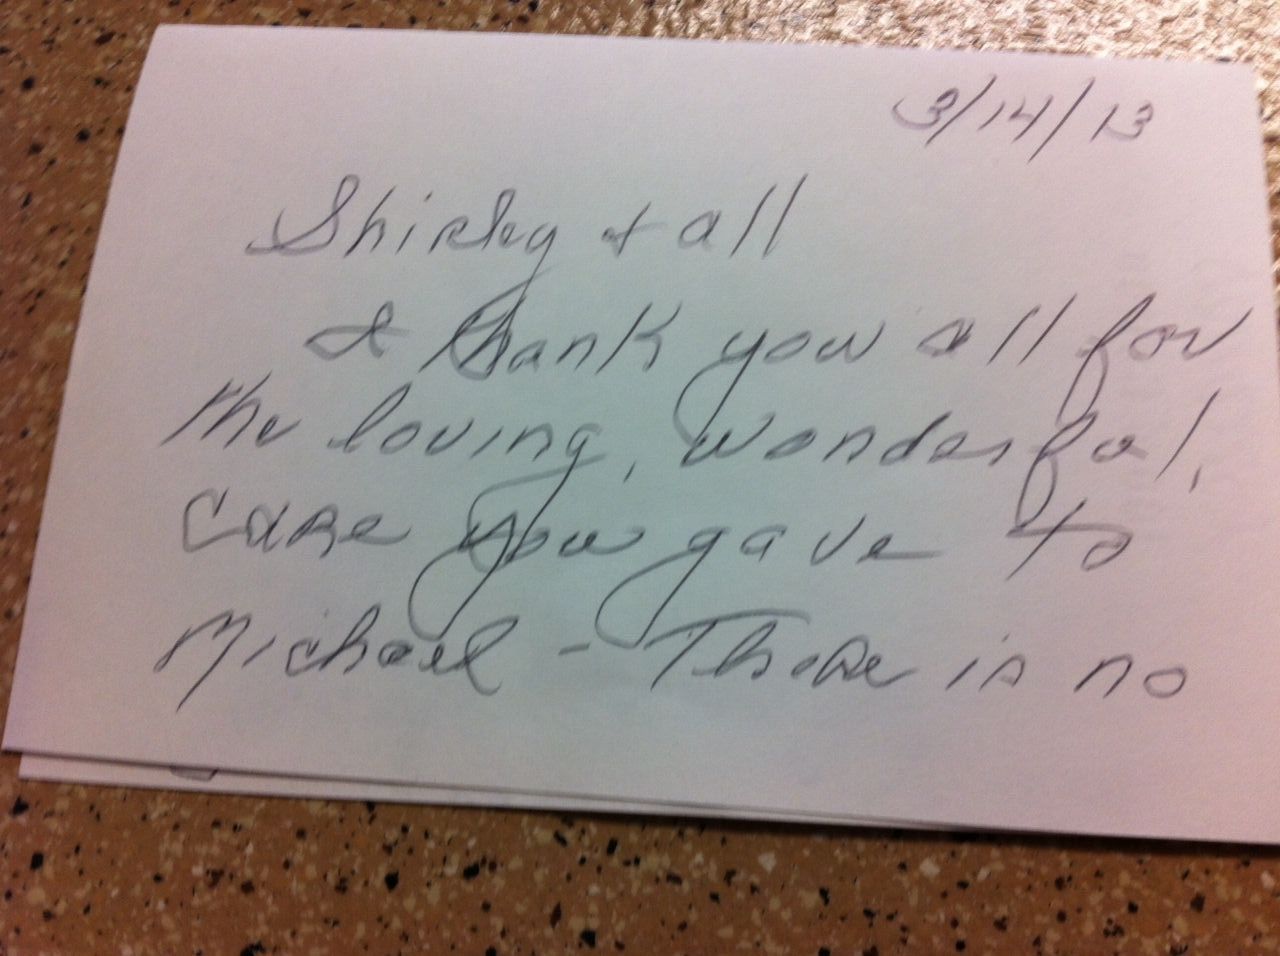 3/14/13
Shirley + all
I thank you all for
the loving, wonderful,
care you gave to
Michael - There is no